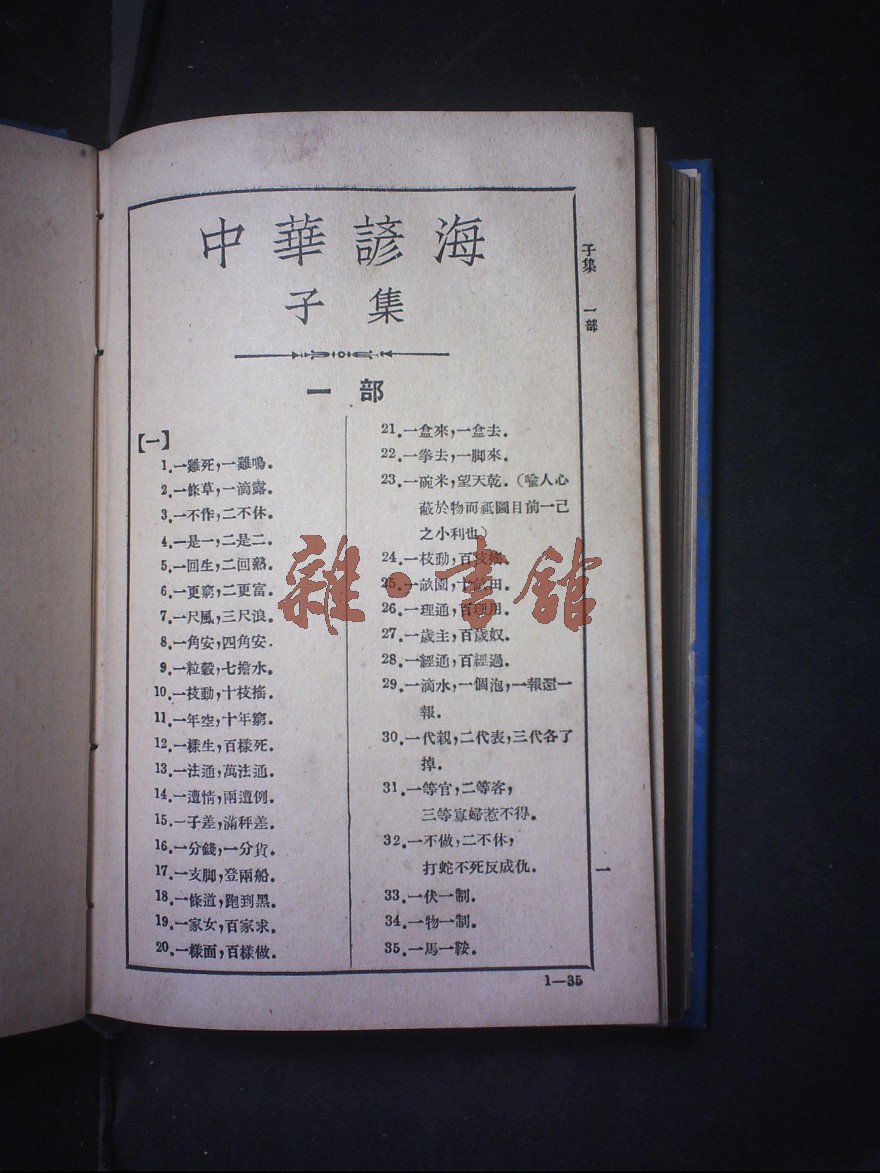 中華諺海
子集
一部
【一】
1.一雞死,一雞鳴.
2.一條草,一滴露.
3.一不作,二不休.
4.一是一,二是二.
5.一回生,二回熟.
6.一更窮,二更富.
7.一尺風,三尺浪.
8.一角安,四角安.
9.一粒穀,七擔水.
10.一枝動,十枝搖.
11.一年空,十年窮.
12.一樣生,百樣死.
13.一法通,萬法通.
14.一遭情,兩遭例.
15.一子差,滿秤差.
16.一分錢,一分貨.
17.一支脚,登兩船.
18.一條道,跑到黑.
19.一家女,百家求.
20.一樣面,百樣做.
21.一盒來,一盒去.
22.一拳去,一脚來.
23.一碗米,望天乾.(喩人心
蔽於物而祗圖目前一己
之小利也)
24.一枝動,百枝搖.
25.一畝園,十畝田.
26.一理通,百理用.
27.一歲主,百歲奴.
28.一經通,百經過.
29.一滴水,一個泡,一報還一
報.
30.一代親,二代表,三代各了
掉.
31.一等官,二等客,
三等寡婦惹不得.
32.一不做,二不休,
打蛇不死反成仇.
33.一伏一制.
34.一物一制.
35.一馬一鞍.
子集 一部
一
1—35
雜·書館